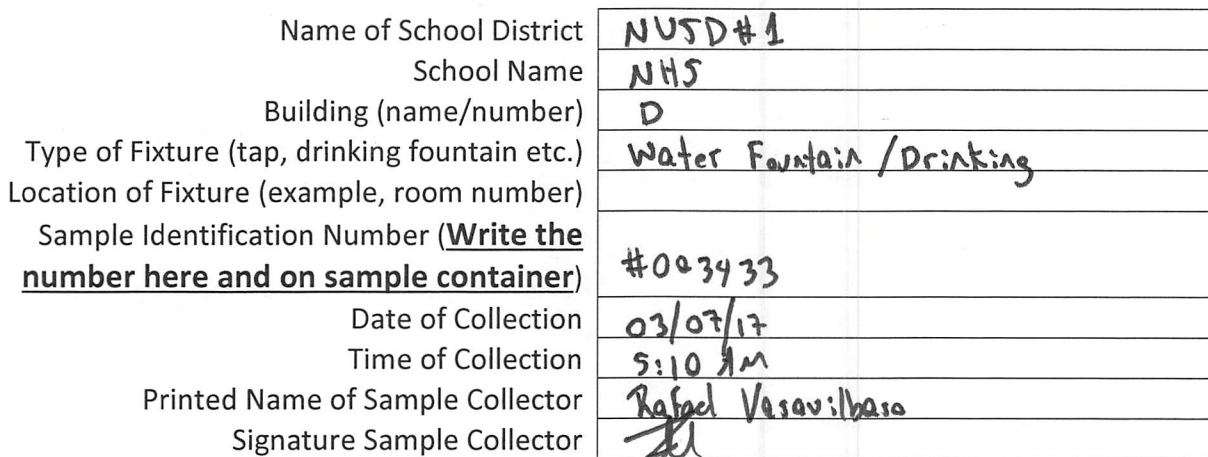 Name of School District NUSD#1
School Name NHS
Building (name/number) D
Type of Fixture (tap, drinking fountain etc.) Water Fountain / Drinking
Location of Fixture (example, room number)
Sample Identification Number (Write the
number here and on sample container) #003433
Date of Collection 03/07/17
Time of Collection 5:10 AM
Printed Name of Sample Collector Rafael Vasavilbaso
Signature Sample Collector